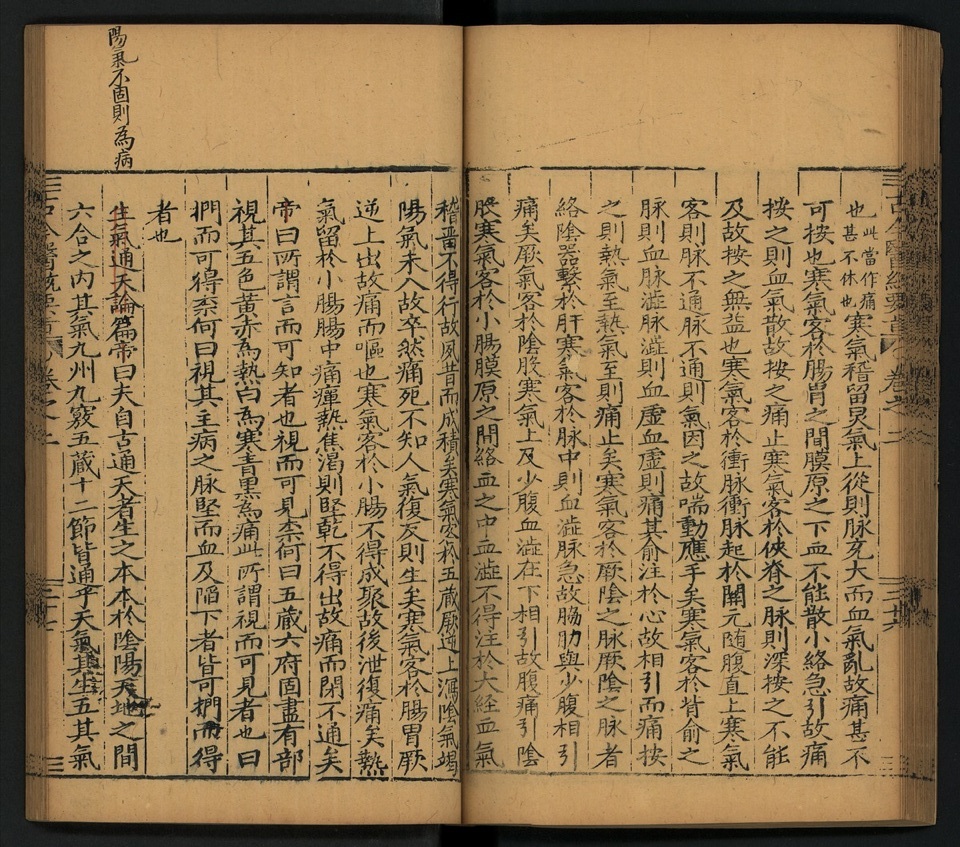 也此當作痛甚不休也寒氣稽留炅氣上從則脉充大而血氣亂故痛甚不
可按也寒氣客於腸胃之間膜原之下血不能散小絡急引故痛
按之則血氣散故按之痛止寒氣客於俠脊之脉則深按之不能
及故按之無益也寒氣客於衝脉衝脉起於關元随腹直上寒氣
客則脉不通脉不通則氣因之故喘動應手矣寒氣客於背俞之
脉則血脉澁脉澁則血虛血虛則痛其俞注於心故相引而痛按
之則熱氣至熱氣至則痛止矣寒氣客於厥陰之脉厥陰之脉者
絡陰器繫於肝寒氣客於脉中則血澁脉急故脇肋與少腹相引
痛矣厥氣客於陰股寒氣上及少腹血澁在下相引故腹痛引陰
股寒氣客於小腸膜原之間絡血之中血澁不得注於大經血氣
稽畱不得行故夙昔而成積矣寒氣客於五蔵厥逆上泄陰氣竭
陽氣未入故卒然痛死不知人氣復反則生矣寒氣客於腸胃厥
逆上出故痛而嘔也寒氣客於小腸不得成聚故後泄復痛矣熱
氣留於小腸腸中痛癉熱焦渴則堅乾不得出故痛而閉不通矣
帝曰所謂言而可知者也視而可見柰何曰五蔵六府固盡有部
視其五色黄赤為熱白為寒青黒為痛此所謂視而可見者也曰
捫而可得柰何曰視其主病之脉堅而血及陥下者皆可捫而得
者也
陽氣不固則為病
生氣通天論篇帝曰夫自古通天者生之本本於陰陽天地之間
六合之内其氣九州九竅五蔵十二節皆通乎天氣其生五其氣